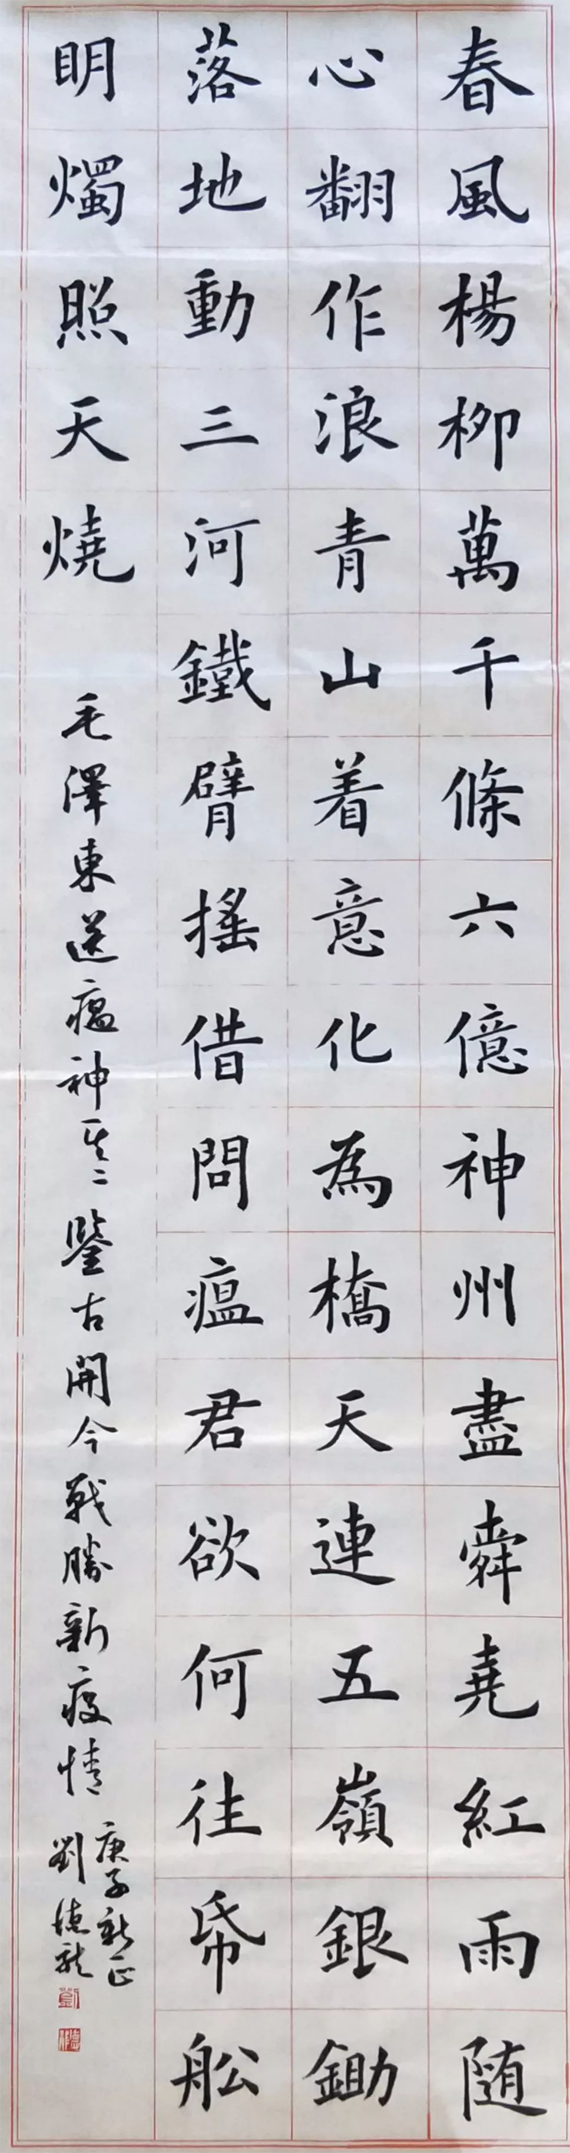 春風楊柳萬千條六億神州盡舜堯紅雨随
心翻作浪青山着意化為橋天連五嶺銀鋤
落地動三河鐵臂搖借問瘟君欲何往帋舩
明燭照天燒
毛澤東送瘟神其二鑒古開今戰勝新疫情
庚子新正
劉德龍